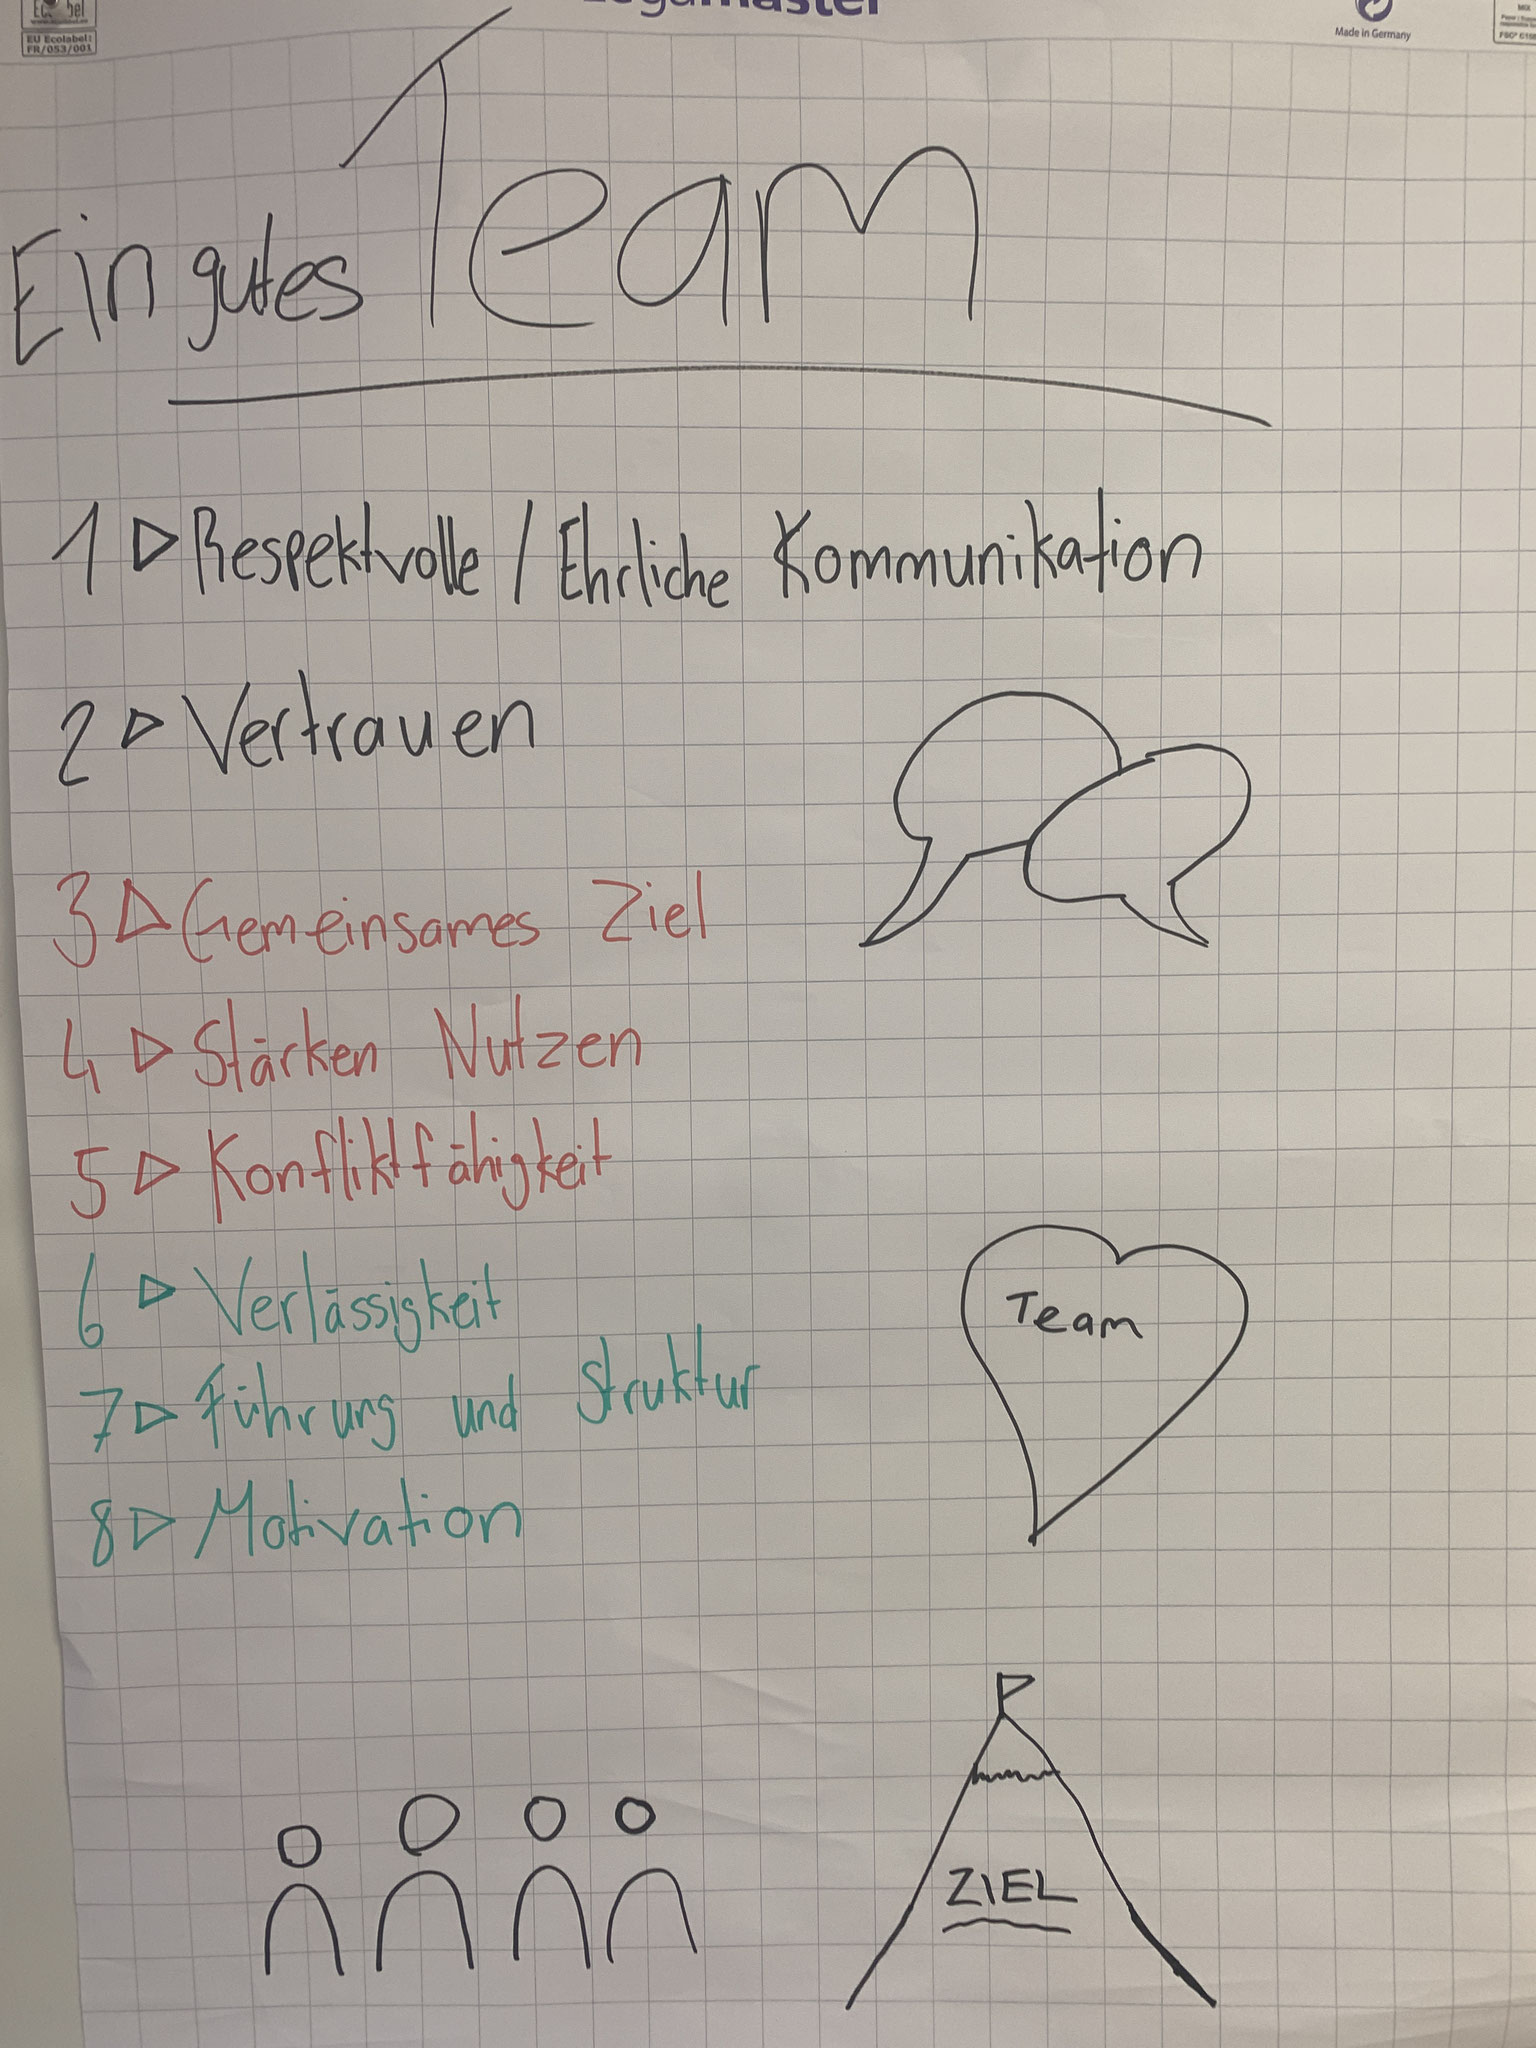 EU Ecolabel:
FR/053/001
Made in Germany
Ein gutes Team
1 ▷ Respektvolle / Ehrliche Kommunikation
2 ▷ Vertrauen
3 ▷ Gemeinsames Ziel
4 ▷ Stärken Nutzen
5 ▷ Konfliktfähigkeit
6 ▷ Verlässigkeit
7 ▷ Führung und Struktur
8 ▷ Motivation
Team
ZIEL